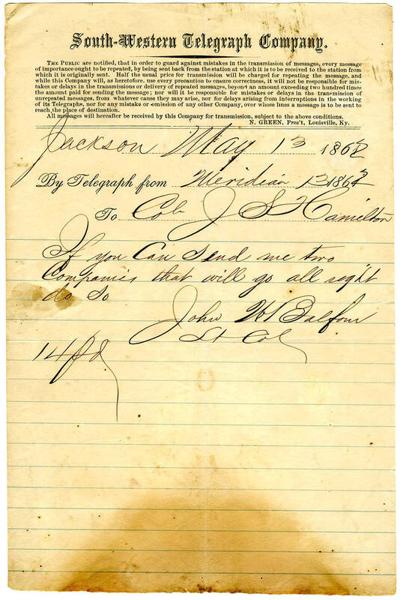 South-Western Telegraph Company.
THE PUBLIC are notified, that in order to guard against mistakes in the transmission of messages, every message
of importance ought to be repeated, by being sent back from the station at which it is to be received to the station from
which it is originally sent. Half the usual price for transmission will be charged for repeating the message, and
while this Company will, as heretofore, use every precaution to ensure correctness, it will not be responsible for mis-
takes or delays in the transmissions or delivery of repeated messages, beyond an amount exceeding two hundred times
the amount paid for sending the message; nor will it be responsible for mistakes or delays in the transmission of
unrepeated messages, from whatever cause they may arise, nor for delays arising from interruptions in the working
of its Telegraphs, nor for any mistake or omission of any other Company, over whose lines a message is to be sent to
reach the place of destination.
All messages will hereafter be received by this Company for transmission, subject to the above conditions.
N. GREEN, Pres't, Louisville, Ky.
Jackson May 13 1862
By Telegraph from Meridian 13 1862
To Col J S Hamilton
If you Can Send me two
Companies that will go all right
do so
John W Balfour
Lt Col
14 pd